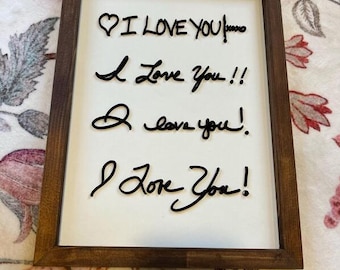 ♡ I LOVE YOU!xoxo
I Love You!!
I love you!
I Love You!